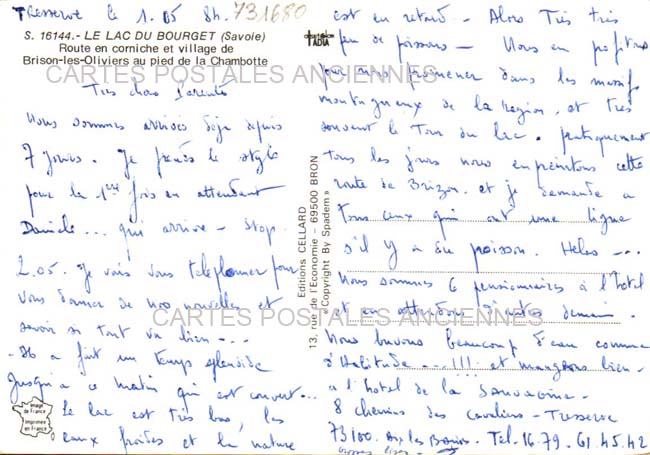 Tresserve le 1.05 84. 731680
S. 16144.- LE LAC DU BOURGET (Savoie)
Route en corniche et village de
Brison-les-Oliviers au pied de la Chambotte
CARTES POSTALES ANCIENNES
Très chers Parents
Nous sommes arrivés déjà depuis
7 jours. Je prends le stylo
pour la 1ere fois en attendant
Daniele... qui arrive - stop.
2.05. Je vais vous telephoner pour
vous donner de nos nouvelles et
savoir si tout va bien ---
CARTES POSTALES ANCIENNES
a fait un temps splendide
Jusqu'a ce matin qui est couvert...
Le lac est très bas, les
eaux froides et la nature
Image de France
Imprimée en France
Editions CELLARD
13, rue de l'Economie - 69500 BRON
« Copyright By Spadem »
est en retard - Alors Très très
peu de poissons - Nous en profitons
pour nous promener dans les massif
montagneux de la région, et très
souvent le Tour du lac. pratiquement
tous les jours nous empruntons cette
route de Brizon. et je demande a
tous ceux qui ont une ligne
s'il y a du poisson. Helas ---
Nous sommes 6 pensionnaires à l'hotel
et en attendons d'autres demain.
Nous buvons beaucoup d'eau comme
d'Habitude --- !!! et mangeons bien -
a l'hotel de la Sauvagine -
8 chemins des cavaliers - Tresserve
73100. Aix les Bains - Tel. 16.79. 61.45.42